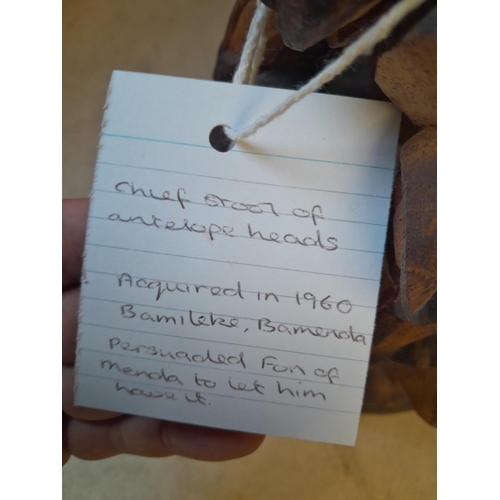 chief stool of
antelope heads
Acquired in 1960
Bamileke, Bamenda
Persuaded Fon of
menda to let him
have it.